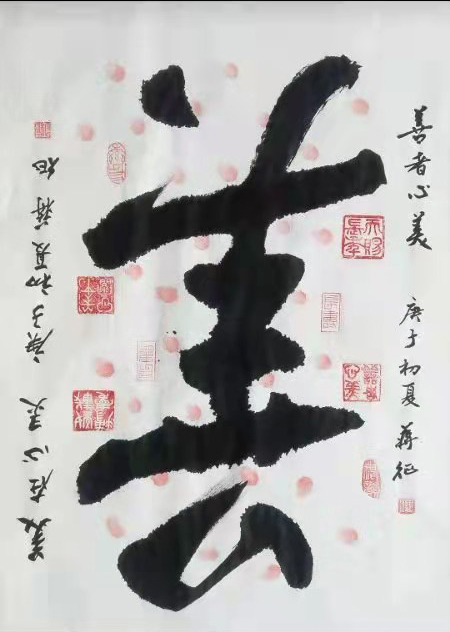 善者心美
庚子初夏 蒋征
善
美在心灵
庚子初夏 蒋征